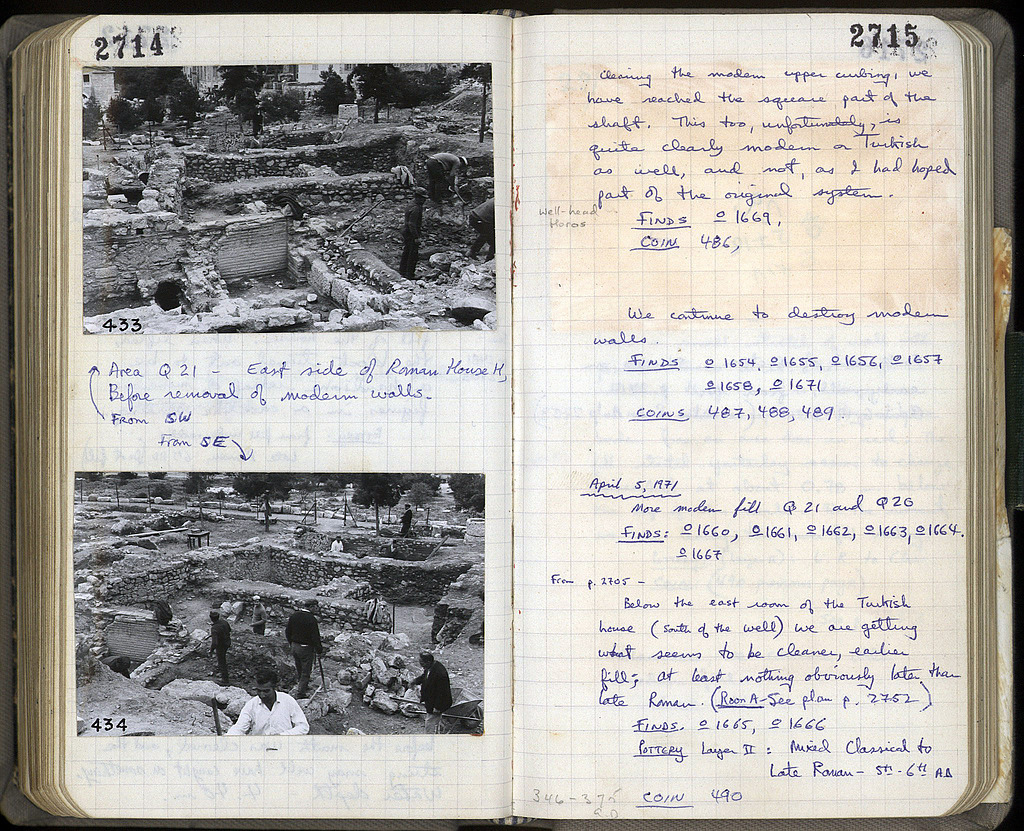 2714
433
Area Q 21 - East side of Roman House H,
Before removal of modern walls.
From SW
From SE
434
2715
Clearing the modern upper curbing, we
have reached the square part of the
shaft. This too, unfortunately, is
quite clearly modern or Turkish
as well, and not, as I had hoped
part of the original system.
well-head
Horos
FINDS o 1669,
COIN 486,
We continue to destroy modern
walls.
FINDS o 1654, o 1655, o 1656, o 1657
o 1658, o 1671
COINS 487, 488, 489.
April 5, 1971
More modern fill Q 21 and Q 20
FINDS: o 1660, o 1661, o 1662, o 1663, o 1664.
o 1667
From p. 2705 -
Below the east room of the Turkish
house (South of the well) we are getting
what seems to be cleaner, earlier
fill; at least nothing obviously later than
late Roman. (Room A - See plan p. 2752)
FINDS. o 1665, o 1666
POTTERY Layer II : Mixed Classical to
Late Roman - 5th - 6th AD
346-375
A.D
COIN 490